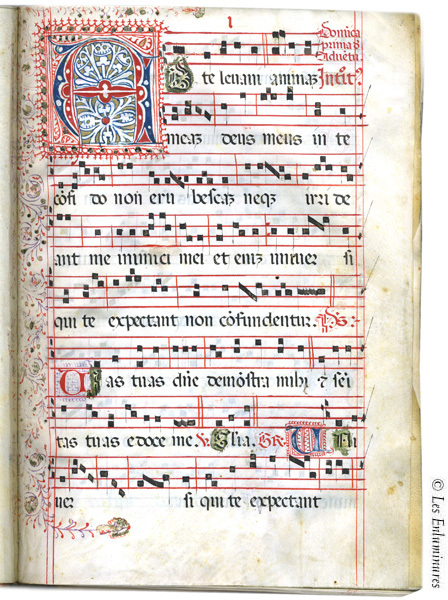 I
Domica
prima d
Aduētu.
Ad te leuaui animaʒ Introit?
meaʒ deus meus in te
cōfi do non eru bescaʒ neqʒ irri de
ant me inimici mei et eniʒ uniuer si
qui te expectant non cōfundentur. Ps.
Uias tuas dn̄e demōstra mihi ⁊ semi
tas tuas edoce me ℣ Gloria. GR Uni
uer si qui te expectant
© Les Enluminures